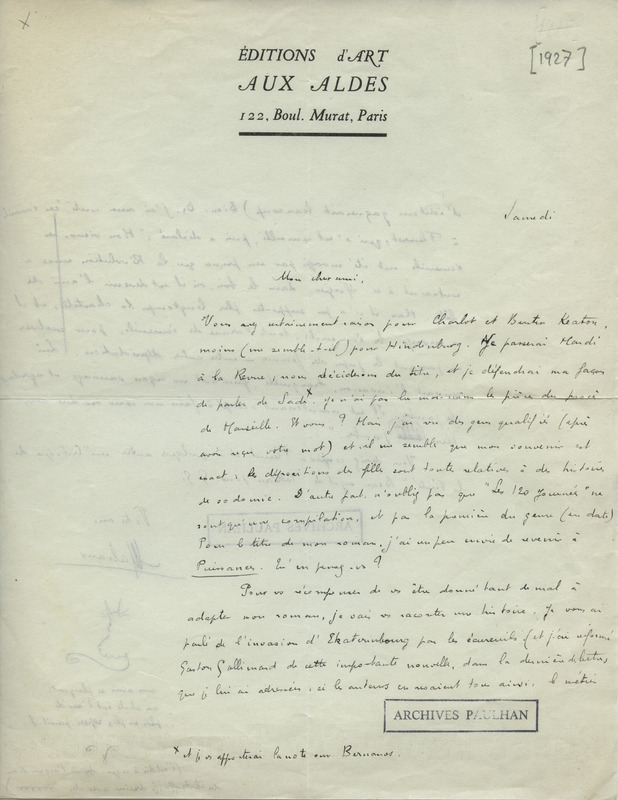 [1927]
ÉDITIONS d'ART
AUX ALDES
122, Boul. Murat, Paris
Samedi
Mon cher ami,
Vous avez certainement raison pour Charlot et Buster Keaton,
moins (me semble-t-il) pour Hindenburg. Je passerai Mardi
à la Revue, nous déciderons du titre, et je défendrai ma façon
de parler de Sade x. Je n'ai pas lu moi-même les pièces du procès
de Marseille. Et vous ? Mais j'ai vu des gens qualifiés (après
avoir reçu votre mot) et il me semble que mon souvenir est
exact ; les dépositions des filles sont toutes relatives à des histoires
de sodomie. D'autre part, n'oubliez pas que "Les 120 Journées" ne
sont qu'une compilation, et pas la première du genre (en date)
Pour le titre de mon roman, j'ai un peu envie de revenir à
Puissances. Qu'en pensez-vs ?
Pour vs récompenser de vs être donné tant de mal à
adapter mon roman, je vais vs raconter une histoire. Je vous ai
parlé de l'invasion d'Ekaterinbourg par les écureuils (et j'ai informé
Gaston Gallimard de cette importante nouvelle, dans la dernière des lettres
que je lui ai adressées ; si les auteurs en usaient tous ainsi, le métier
ARCHIVES PAULHAN
x et je vs apporterai la note sur Bernanos.